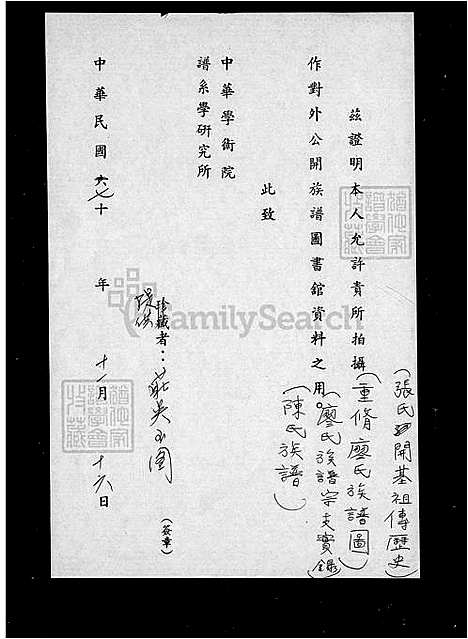 茲證明本人允許貴所拍攝
(張氏開基祖傳歷史)
(重脩廖氏族譜圖)
作對外公開族譜圖書館資料之用。
(廖氏族譜宗支實錄)
(陳氏族譜)
此致
中華學術院
譜系學研究所
提供
珍藏者：莊吳玉圖
(簽章)
中華民國六七十年十一月十六日
FamilySearch